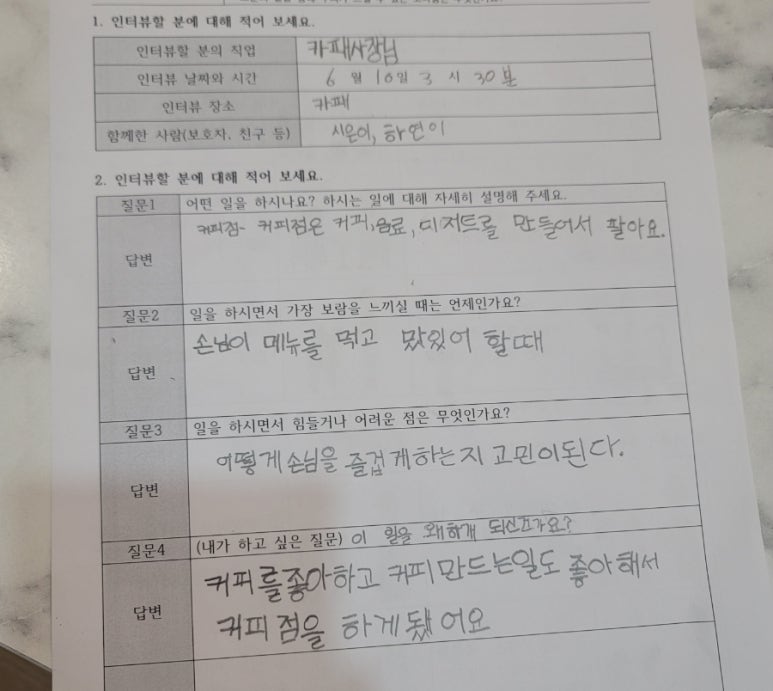 1. 인터뷰할 분에 대해 적어 보세요.
인터뷰할 분의 직업 카패사장님
인터뷰 날짜와 시간 6 월 10일 3 시 30분
인터뷰 장소 카패
함께한 사람(보호자, 친구 등) 시은이, 하연이
2. 인터뷰할 분에 대해 적어 보세요.
질문1 어떤 일을 하시나요? 하시는 일에 대해 자세히 설명해 주세요.
답변 커피점- 커피점은 커피,음료, 디저트를 만들어서 팔아요.
질문2 일을 하시면서 가장 보람을 느끼실 때는 언제인가요?
답변 손님이 메뉴를 먹고 맜있어 할때
질문3 일을 하시면서 힘들거나 어려운 점은 무엇인가요?
답변 어떻게손님을 즐겁게하는지 고민이된다.
질문4 (내가 하고 싶은 질문) 이 일을 왜하개 되신가요?
답변 커피를좋아하고 커피만드는일도 좋아해서
커피점을 하게됐어요